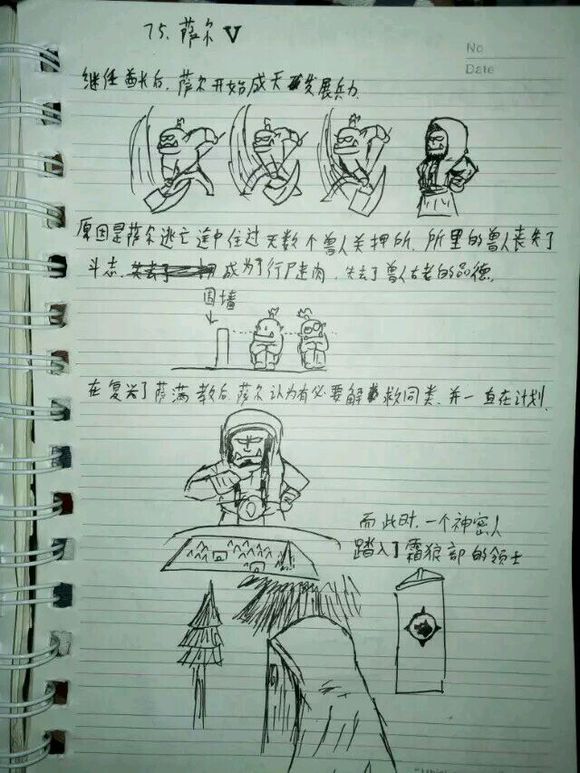 75. 萨尔 V
No
Date
继任酋长后, 萨尔开始成天发展兵力
原因是萨尔逃亡途中住过无数个兽人关押所, 所里的兽人丧失了
斗志, 成为了行尸走肉, 失去了兽人古老的品德。
围墙
在复兴了萨满教后, 萨尔认为有必要解救同类, 并一直在计划.
而此时, 一个神密人
踏入了霜狼部的领土